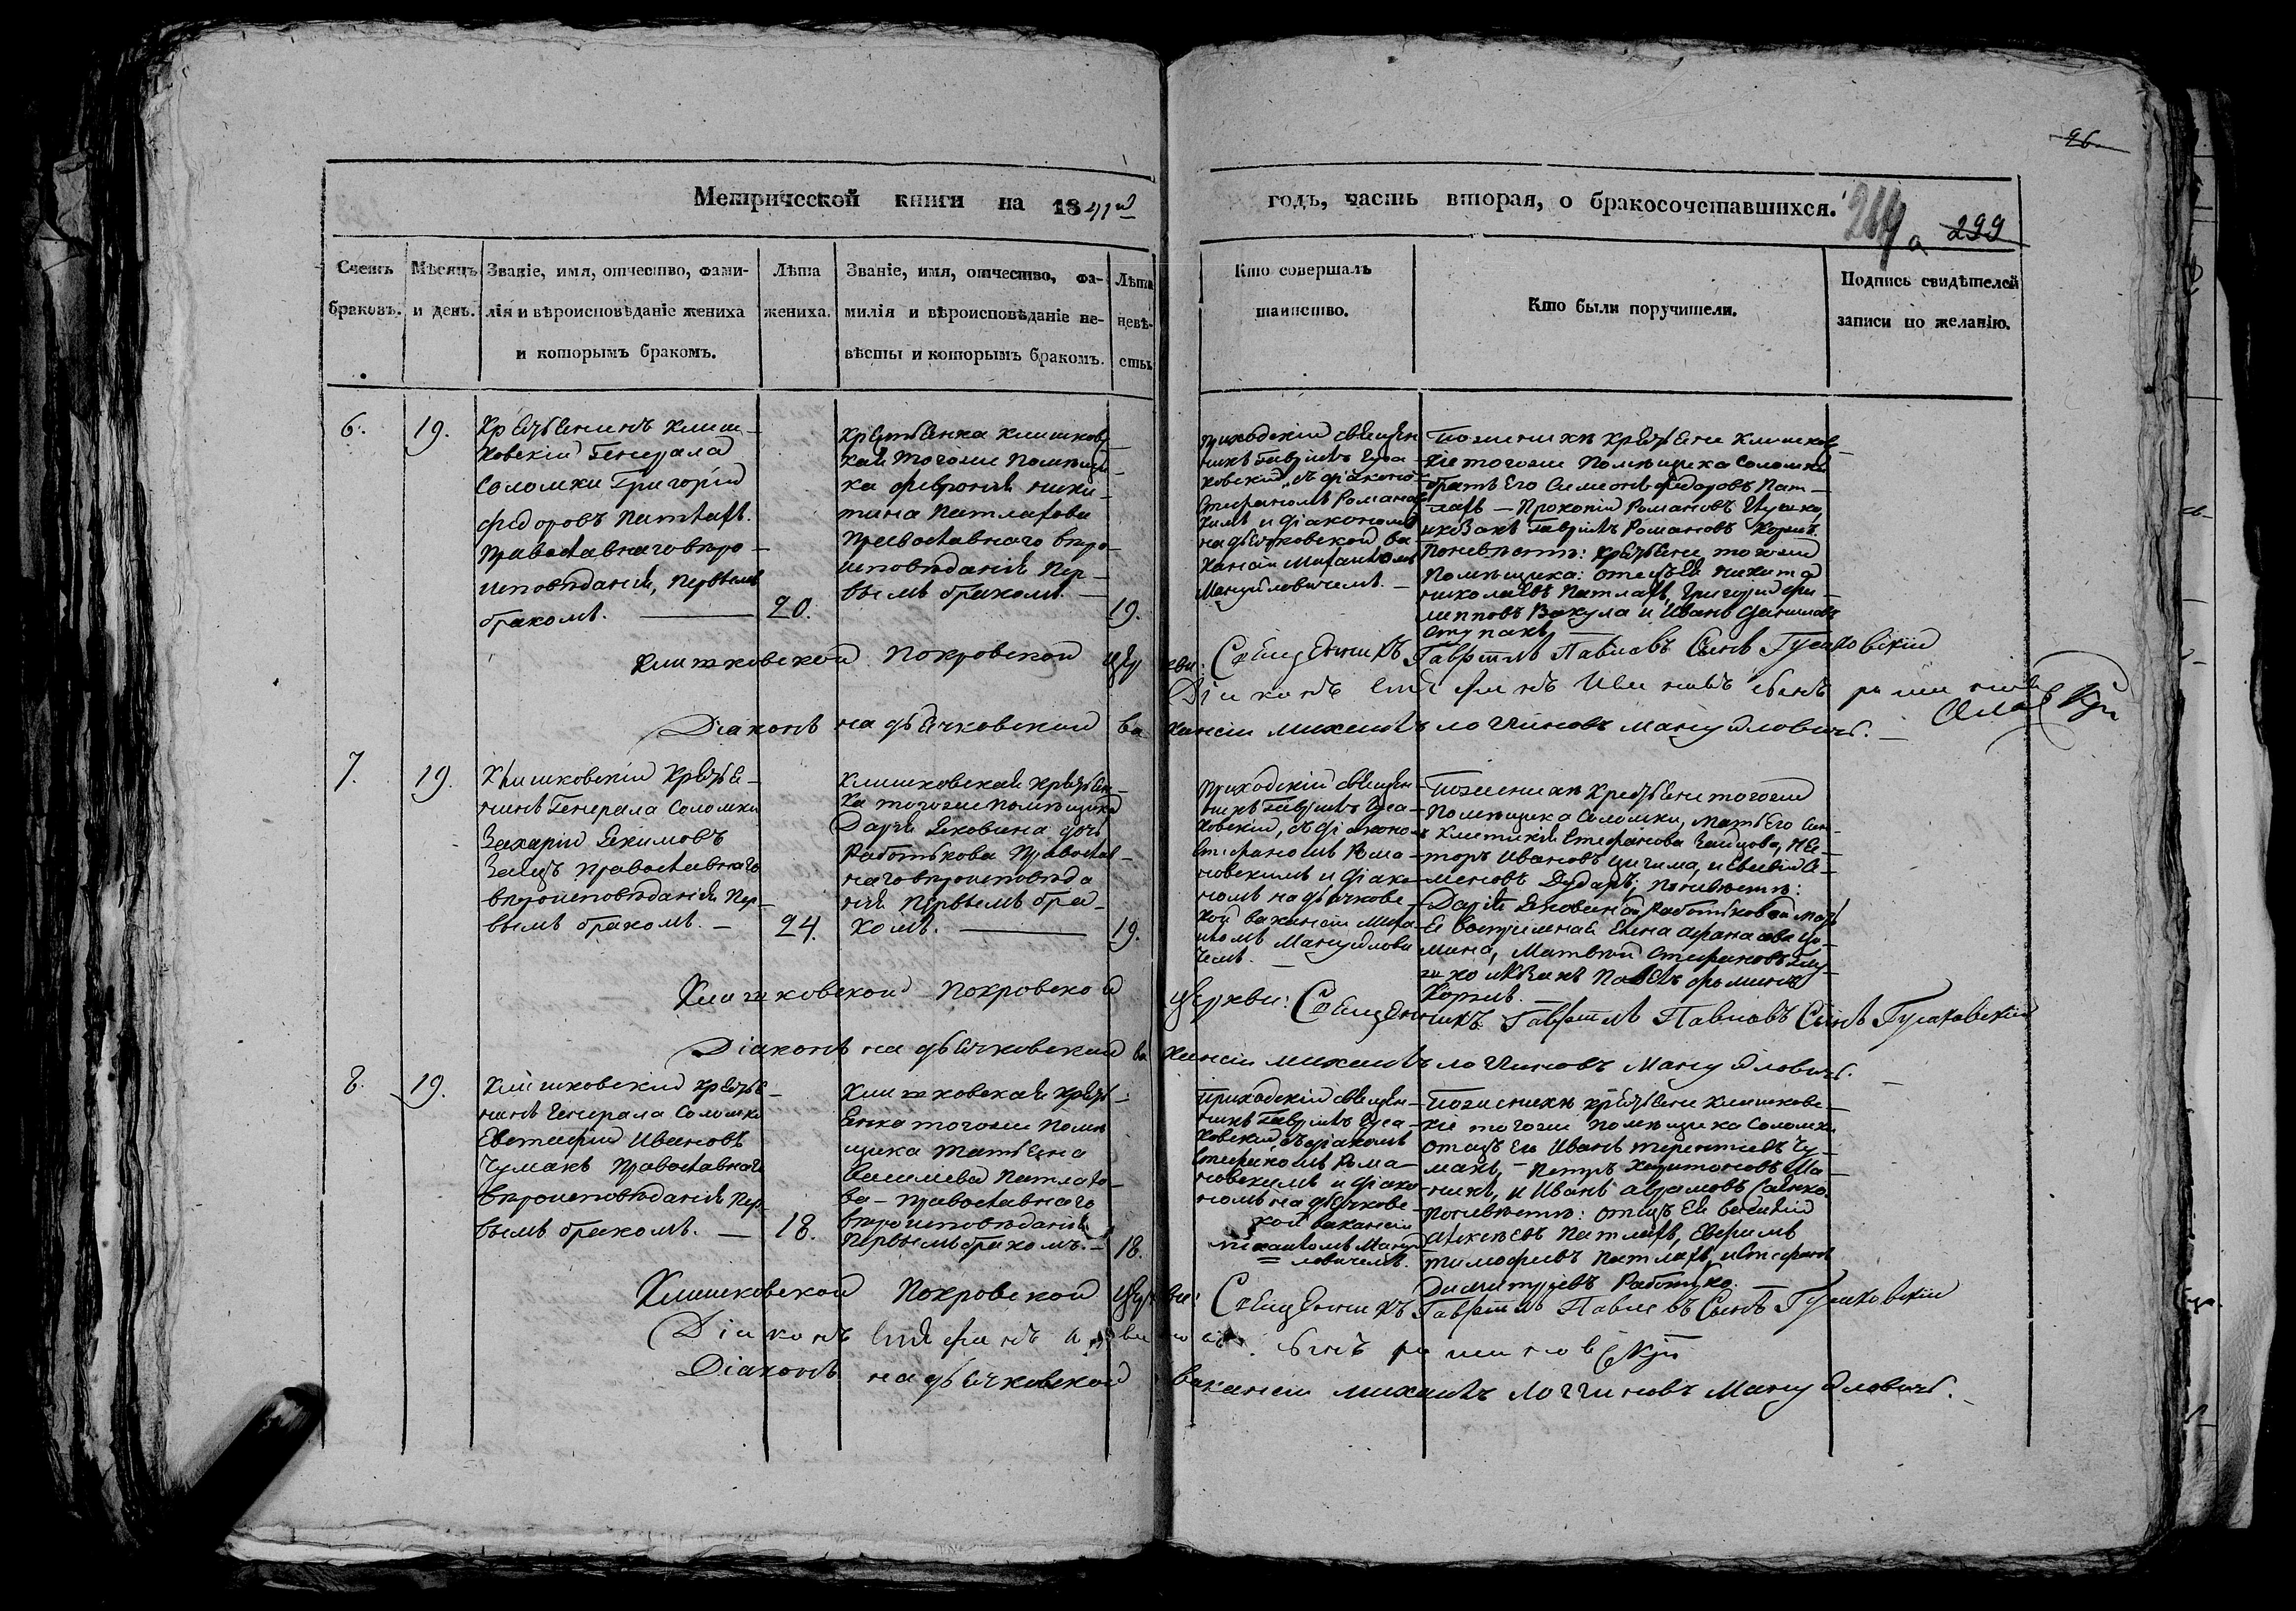 96
Метрической книги на 1841й
годъ, часть вторая, о бракосочетавшихся.
264
а 299
Счетъ браковъ.
Мѣсяцъ и день.
Званіе, имя, отчество, фами-
лія и вѣроисповѣданіе жениха
и которымъ бракомъ.
Лѣта
жениха.
Званіе, имя, отчество, фа-
милія и вѣроисповѣданіе не-
вѣсты и которымъ бракомъ.
Лѣта
невѣ-
сты
Кто совершалъ
таинство.
Кто были поручители.
Подпись свидѣтелей
записи по желанію.
6.
19.
Крестьянинъ Клиш-
ковскій Генерала
Соломки Григорій
Федоровъ Патлахъ
Православнаго вѣро-
исповѣданія, первымъ
бракомъ.
20.
Крестьянка Клишковс-
кая тогоже помѣщи-
ка Феврония Ники-
тина Патлахова
Православнаго вѣро-
исповѣданія пер-
вымъ бракомъ.
19.
Приходскій Священ-
никъ Гавріилъ Гуса-
ковскій, съ діакономъ
Стефаномъ Романов-
кимъ и діакономъ
на дьячковской ва-
кансіи Михаиломъ
Мануйловичемъ.
По женихѣ крестьяне Клишков-
кіе тогоже помѣщика Соломки
братъ его Симеонъ Федоровъ Пат-
лахъ — Прокопій Романовъ
Гавріилъ Романовъ
По невѣстѣ: крестьяне тогоже
помѣщика: отецъ ея Никита
Николаевъ Патлахъ, Григорій Фи-
липповъ Вакула и Иванъ Даниловъ
Ступакъ
Клишковской Покровской церкви: Священникъ Гавріилъ Павловъ Сынъ Гусаковскій
Діаконъ Стефанъ Ивановъ сынъ
Діаконъ на дьячковской вакансіи Михаилъ Логгиновъ Мануйловичъ.
7.
19.
Клишковскій крестья-
нинъ Генерала Соломки
Захарій Якимовъ
Заецъ Православнаго
вѣроисповѣданія пер-
вымъ бракомъ.
24.
Клишковская крестьян-
ка тогоже помѣщика
Дарія Яковлева дочь
Работькова Православ-
наго вѣроисповѣда
нія первымъ бра-
комъ.
19.
Приходскій Священ-
никъ Гавріилъ Гуса-
ковскій, съ діаконо-
Стефаномъ Рома-
новскимъ и діако-
номъ на дьячковс-
кой вакансіи Миха-
иломъ Мануйлови
чемъ.
По женихѣ крестьяне тогоже
помѣщика Соломки, мать его
Стефанова Зайцова, Нес-
торъ Ивановъ
меновъ Дударь; по невѣстѣ:
Даріи Яковлевой Работьковой мать
ея Елена Афанасова
мина, Матвѣй Стефановъ
Клишковской Покровской церкви: Священникъ Гавріилъ Павловъ Сынъ Гусаковскій
Діаконъ на дьячковской вакансіи Михаилъ Логгиновъ Мануйловичъ.
8.
19.
Клишковскій крестья-
нинъ Генерала Соломки
Евстафій Ивановъ
Чумакъ Православнаго
вѣроисповѣданія пер-
вымъ бракомъ.
18.
Клишковская кресть-
янка тогоже помѣ
щика Татьяна
Василиева Патлахо-
ва — Православнаго
вѣроисповѣданія
первымъ бракомъ.
18.
Приходскій Священ-
никъ Гавріилъ Гуса-
ковскій, съ діакономъ
Стефаномъ Рома-
новскимъ и діако-
номъ на дьячковс-
кой вакансіи
Михаиломъ Мануй
ловичемъ.
По женихѣ крестьяне Клишковс-
кіе тогоже помѣщика Соломки
отецъ его Иванъ Терентіевъ Чу-
макъ, — Петръ Харитоновъ
и Иванъ Аврамовъ Саенко.
По невѣстѣ: отецъ ея Василій
Алексѣевъ Патлахъ, Ефремъ
Тимофеевъ Патлахъ, и Стефанъ
Димитріевъ Работько.
Клишковской Покровской церкви: Священникъ Гавріилъ Павловъ Сынъ Гусаковскій
Діаконъ Стефанъ
Діаконъ на дьячковской вакансіи Михаилъ Логгиновъ Мануйловичъ.